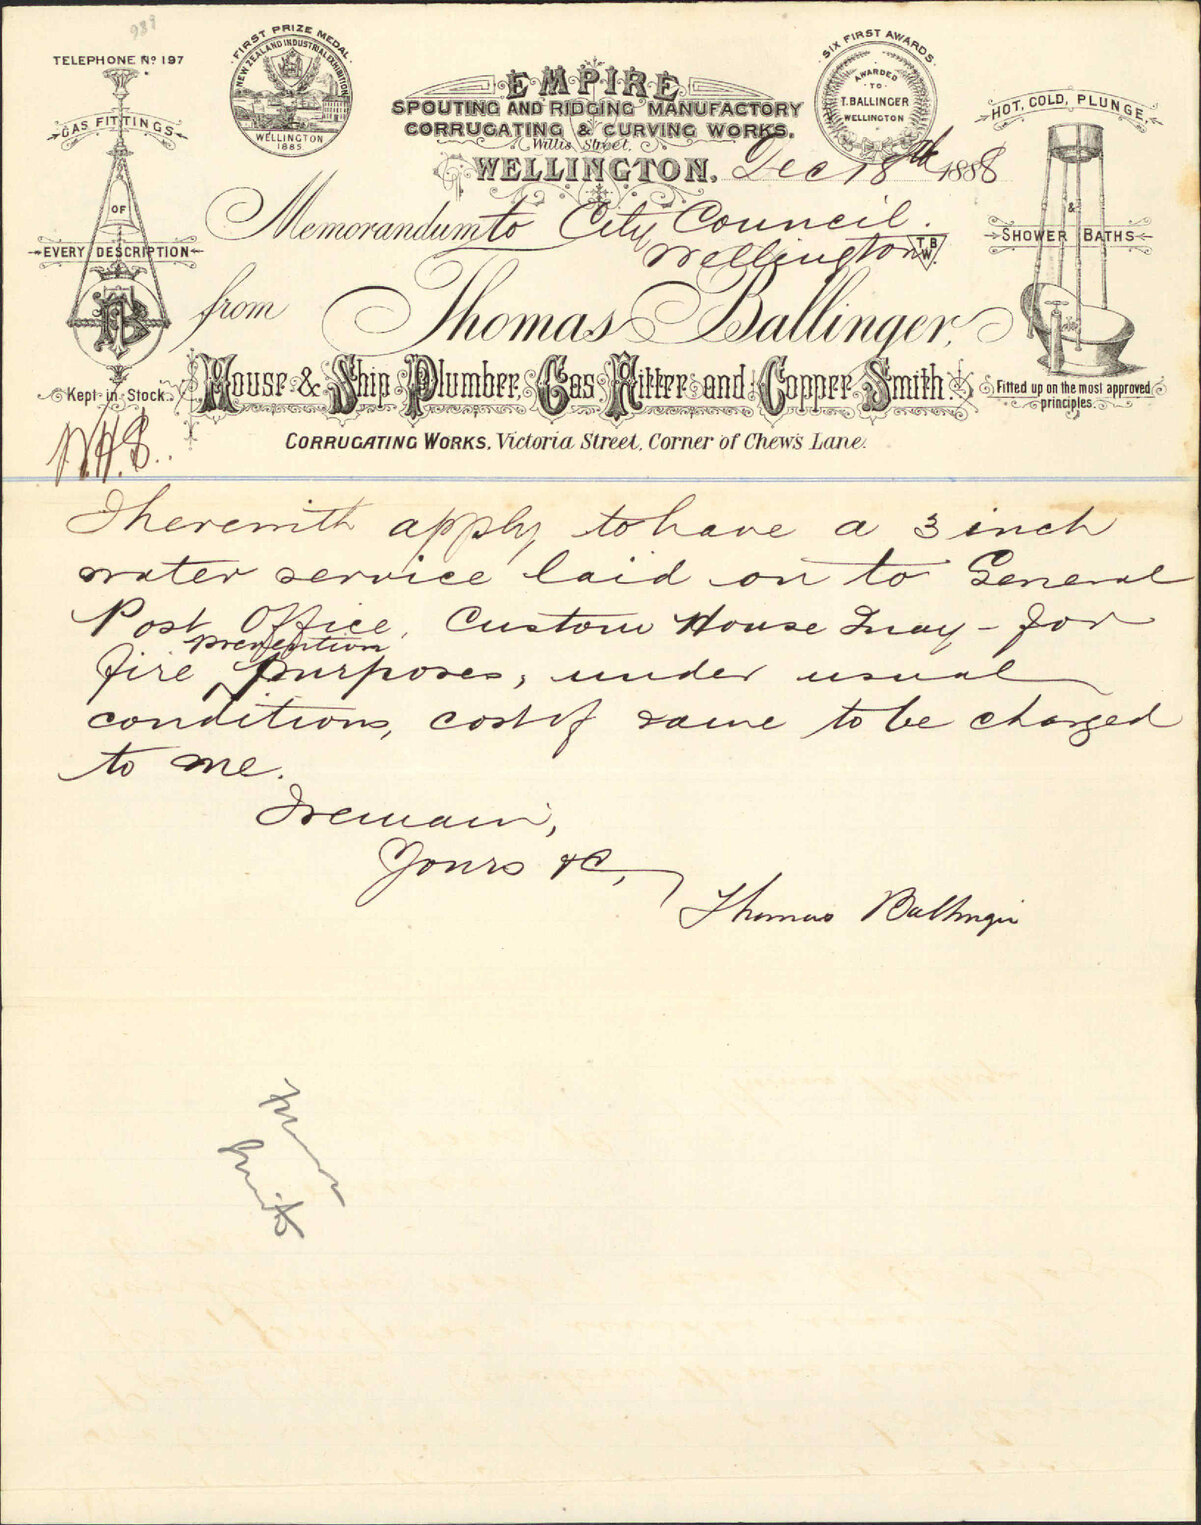 989
TELEPHONE No 197
GAS FITTINGS
OF
EVERY DESCRIPTION
TB
Kept in Stock.
FIRST PRIZE MEDAL
NEW ZEALAND INDUSTRIAL EXHIBITION
WELLINGTON
1885
EMPIRE
SPOUTING AND RIDGING MANUFACTORY
CORRUGATING & CURVING WORKS.
Willis Street,
WELLINGTON, Dec 18th 1888
SIX FIRST AWARDS
AWARDED
TO
T. BALLINGER
WELLINGTON
HOT, COLD, PLUNGE,
&
SHOWER BATHS
Fitted up on the most approved
principles.
Memorandum to City Council.
Wellington
T B
W.
from Thomas Ballinger,
House & Ship Plumber, Gas Fitter and Copper Smith.
CORRUGATING WORKS, Victoria Street, Corner of Chew's Lane.
I herewith apply to have a 3 inch
water service laid on to General
Post Office, Custom House Quay - for
prevention
fire purposes, under usual
conditions, cost of same to be charged
to me.
I remain,
Yours &C,
Thomas Ballinger